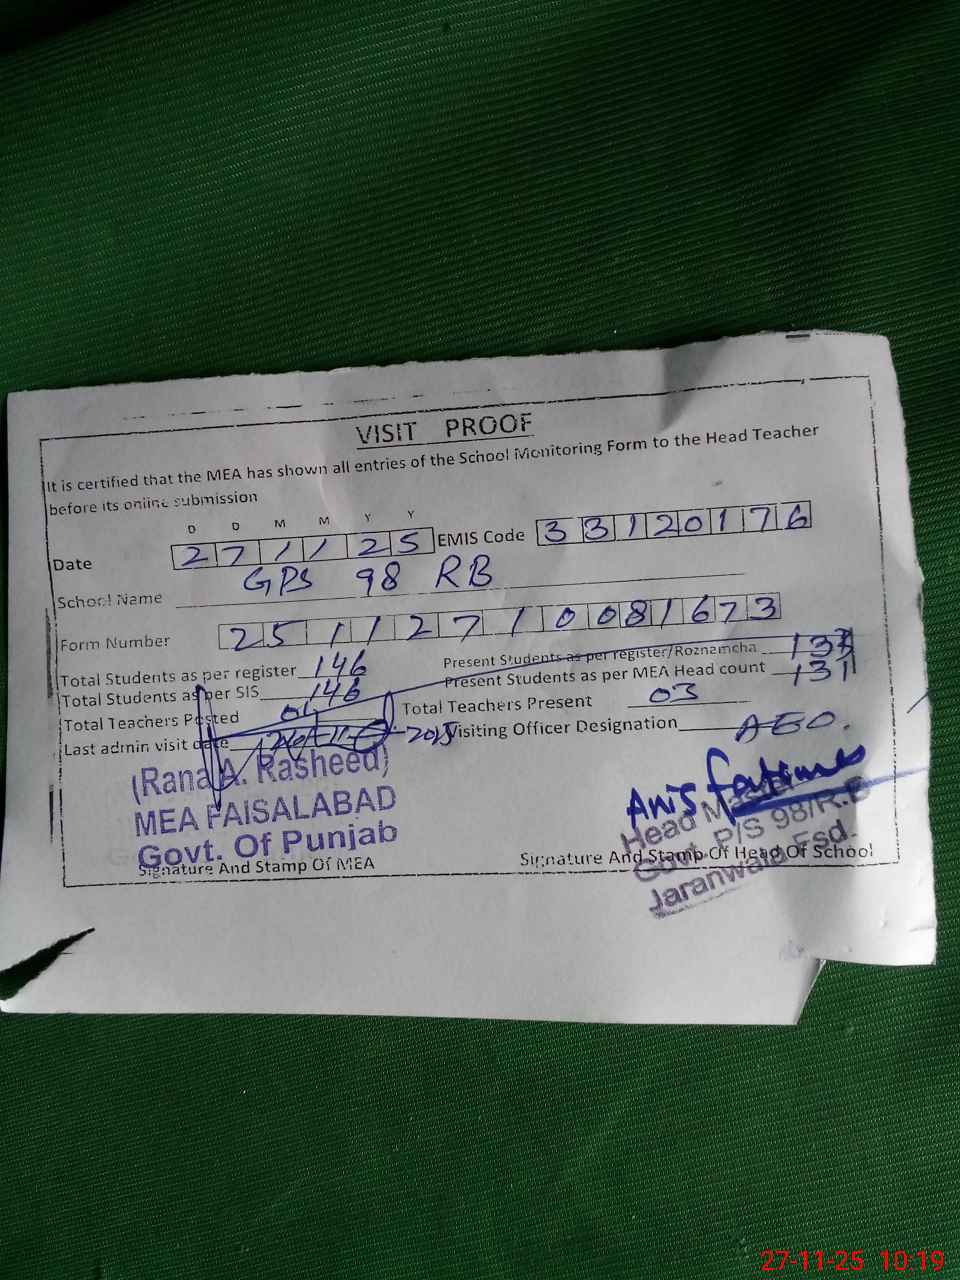 VISIT PROOF
It is certified that the MEA has shown all entries of the School Monitoring Form to the Head Teacher
before its online submission
D D M M Y Y
Date 27 11 25 EMIS Code 33120176
School Name GPS 98 RB
Form Number 2511271 0081673
Total Students as per register 146 Present Students as per register/Roznamcha
Total Students as per SIS 146 Present Students as per MEA Head count 131
Total Teachers Posted Total Teachers Present 03
Last admin visit date 2025 Visiting Officer Designation AEO.
(Rana A. Rasheed)
MEA FAISALABAD
Govt. Of Punjab
Signature And Stamp Of MEA
Anis Fatima
Head Master
Govt. P/S 98/R.B
Jaranwala Fsd.
Signature And Stamp Of Head Of School
27-11-25 10:19